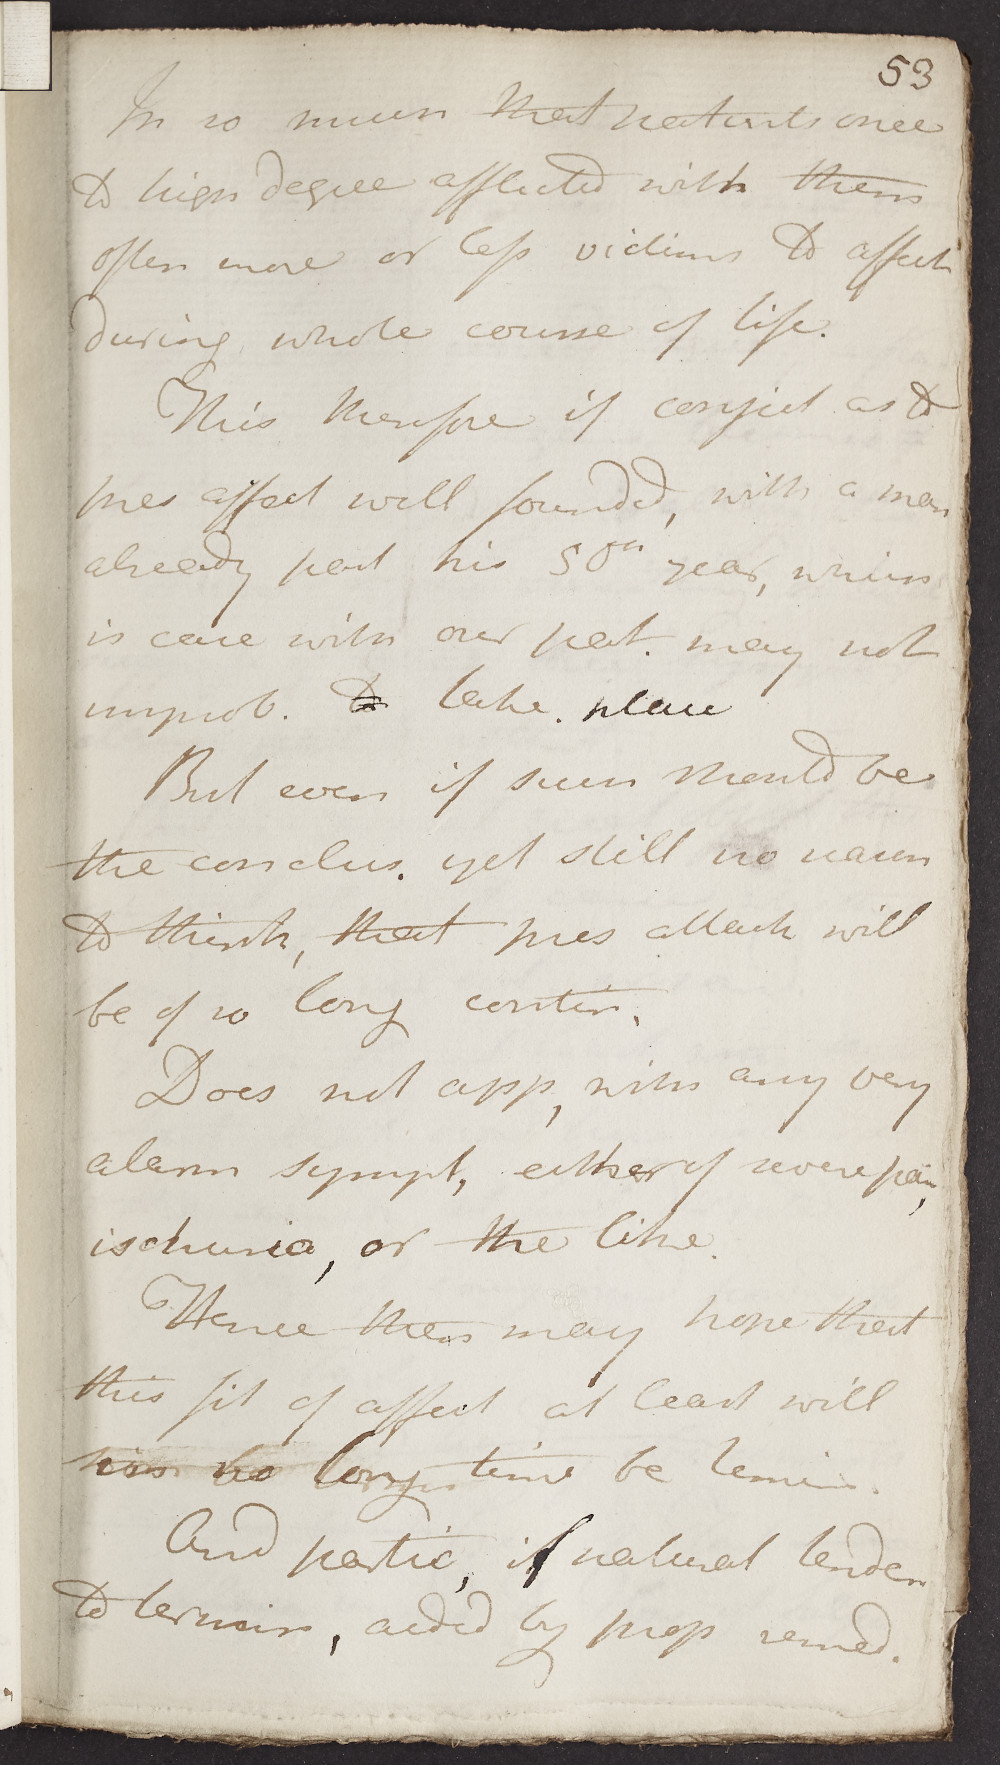 53
In so much that patients once
to high degree afflicted with them
often more or less victims to affect
during whole course of life.
This therefore if conject as to
pres affect well founded, with a man
already past his 50th year, which
is case with our pat. may not
improb. to take. place
But even if such should be
the conclus. yet still no reason
to think, that pres attack will
be of so long contin.
Does not app, with any very
alarm sympt, either of severe pain,
ischuria, or the like.
Hence then may hope that
this fit of affect at least will
no long time be
And partic, if natural tenden
to termin, aided by prop remed.